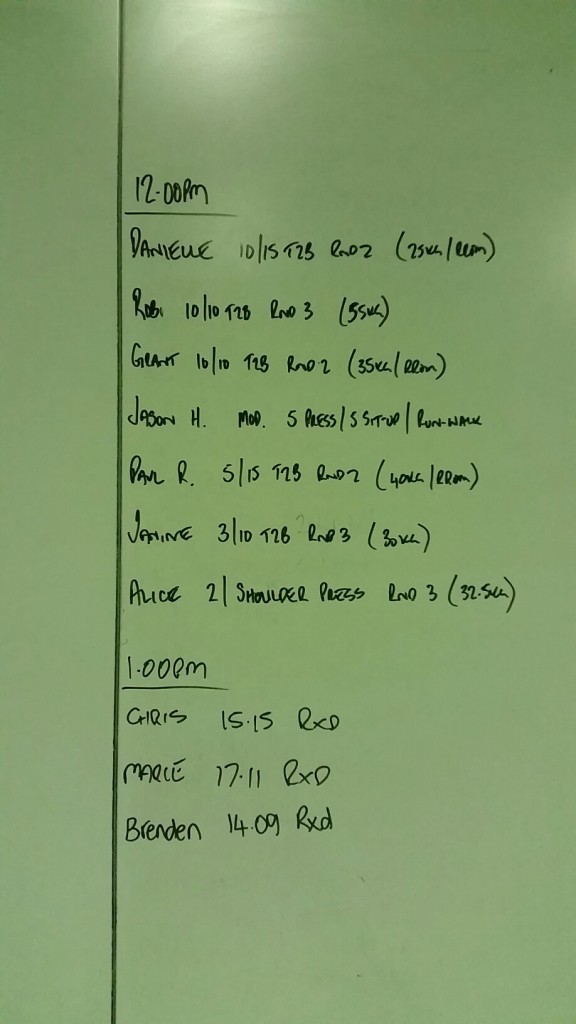 12.00PM
DANIELLE 10/15 T2B RND 2 (25KG/RROM)
ROBI 10/10 T2B RND 3 (55KG)
GRANT 10/10 T2B RND 2 (35KG/RROM)
JASON H. MOD. 5 PRESS/5 SIT-UP/RUN-WALK
PAUL R. 5/15 T2B RND 2 (40KG/RROM)
JANINE 3/10 T2B RND 3 (30KG)
ALICE 2/ SHOULDER PRESS RND 3 (32.5KG)
1.00PM
GIRIS 15.15 RXD
17.11 RXD
Brenden 14.09 Rxd